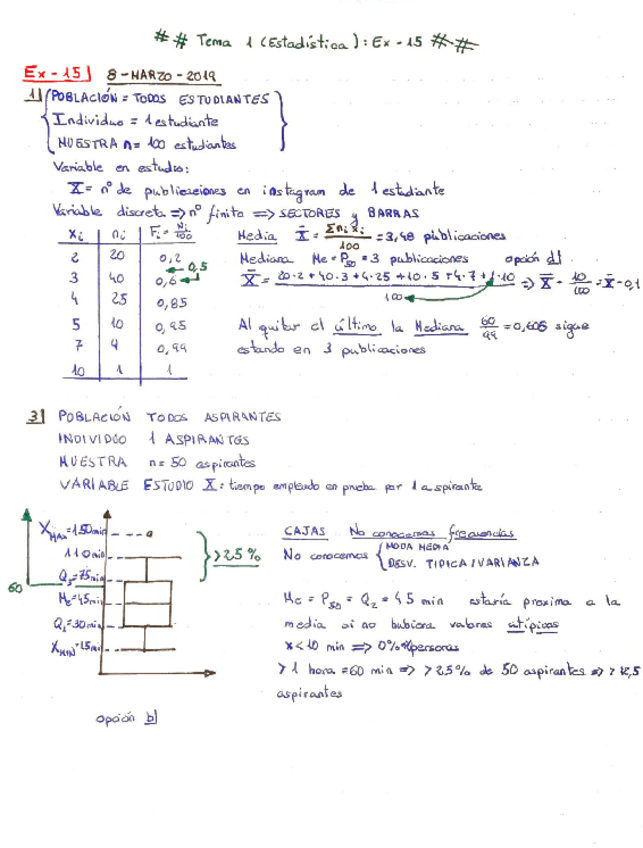 ## Tema 1 (Estadística): Ex-15 ##
Ex-15| 8-MARZO-2019
1| POBLACIÓN = TODOS ESTUDIANTES
Individuo = 1 estudiante
MUESTRA n = 100 estudiantes
Variable en estudio:
X = nº de publicaciones en instagram de 1 estudiante
Variable discreta => nº finito => SECTORES y BARRAS
xi ni Fi = Ni/100 Media X̄ = Σni xi/100 = 3,48 publicaciones
2 20 0,2 Mediana Me = P50 = 3 publicaciones opción d|
← 0,5
3 40 0,6 X̄ = 20·2+40·3+4·25+10·5+4·7+1·10/100 => X̄ - 10/100 = X̄ - 0,1
4 25 0,85
5 10 0,95 Al quitar el último la Mediana 60/99 = 0,606 sigue
7 4 0,99 estando en 3 publicaciones
10 1 1
3| POBLACIÓN TODOS ASPIRANTES
INDIVIDUO 1 ASPIRANTES
MUESTRA n = 50 aspirantes
VARIABLE ESTUDIO X: tiempo empleado en prueba por 1 aspirante
XMAX = 150 min
110 min
Q3 = 75 min
60
Me = 45 min
Q1 = 30 min
XMIN = 15 min
>25%
opción b|
CAJAS No conocemos frecuencias
No conocemos { MODA MEDIA
DESV. TIPICA/VARIANZA
Me = P50 = Q2 = 45 min estaría proxima a la
media si no hubiera valores atípicos
x < 10 min => 0% personas
> 1 hora = 60 min => > 25% de 50 aspirantes => > 12,5
aspirantes